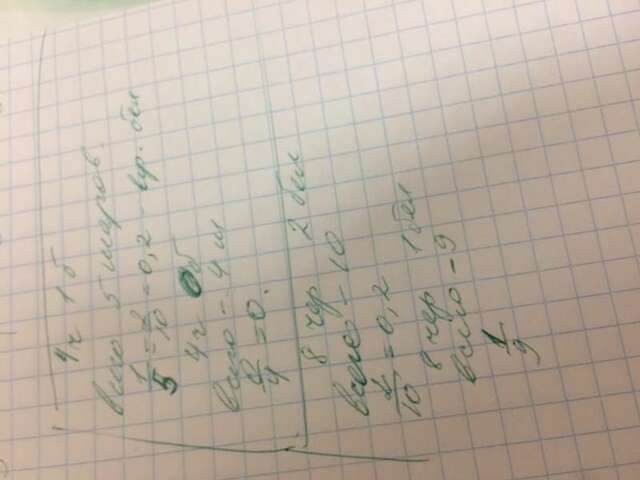 4ч 1б
всего 5 шаров.
1/5 = 2/10 = 0,2 - вр. бел
4ч 0б
всего - 4 ш
0/4 = 0.
8 чер 2 бел
всего - 10
2/10 = 0,2
8 чер 1 бел
всего - 9
1/9